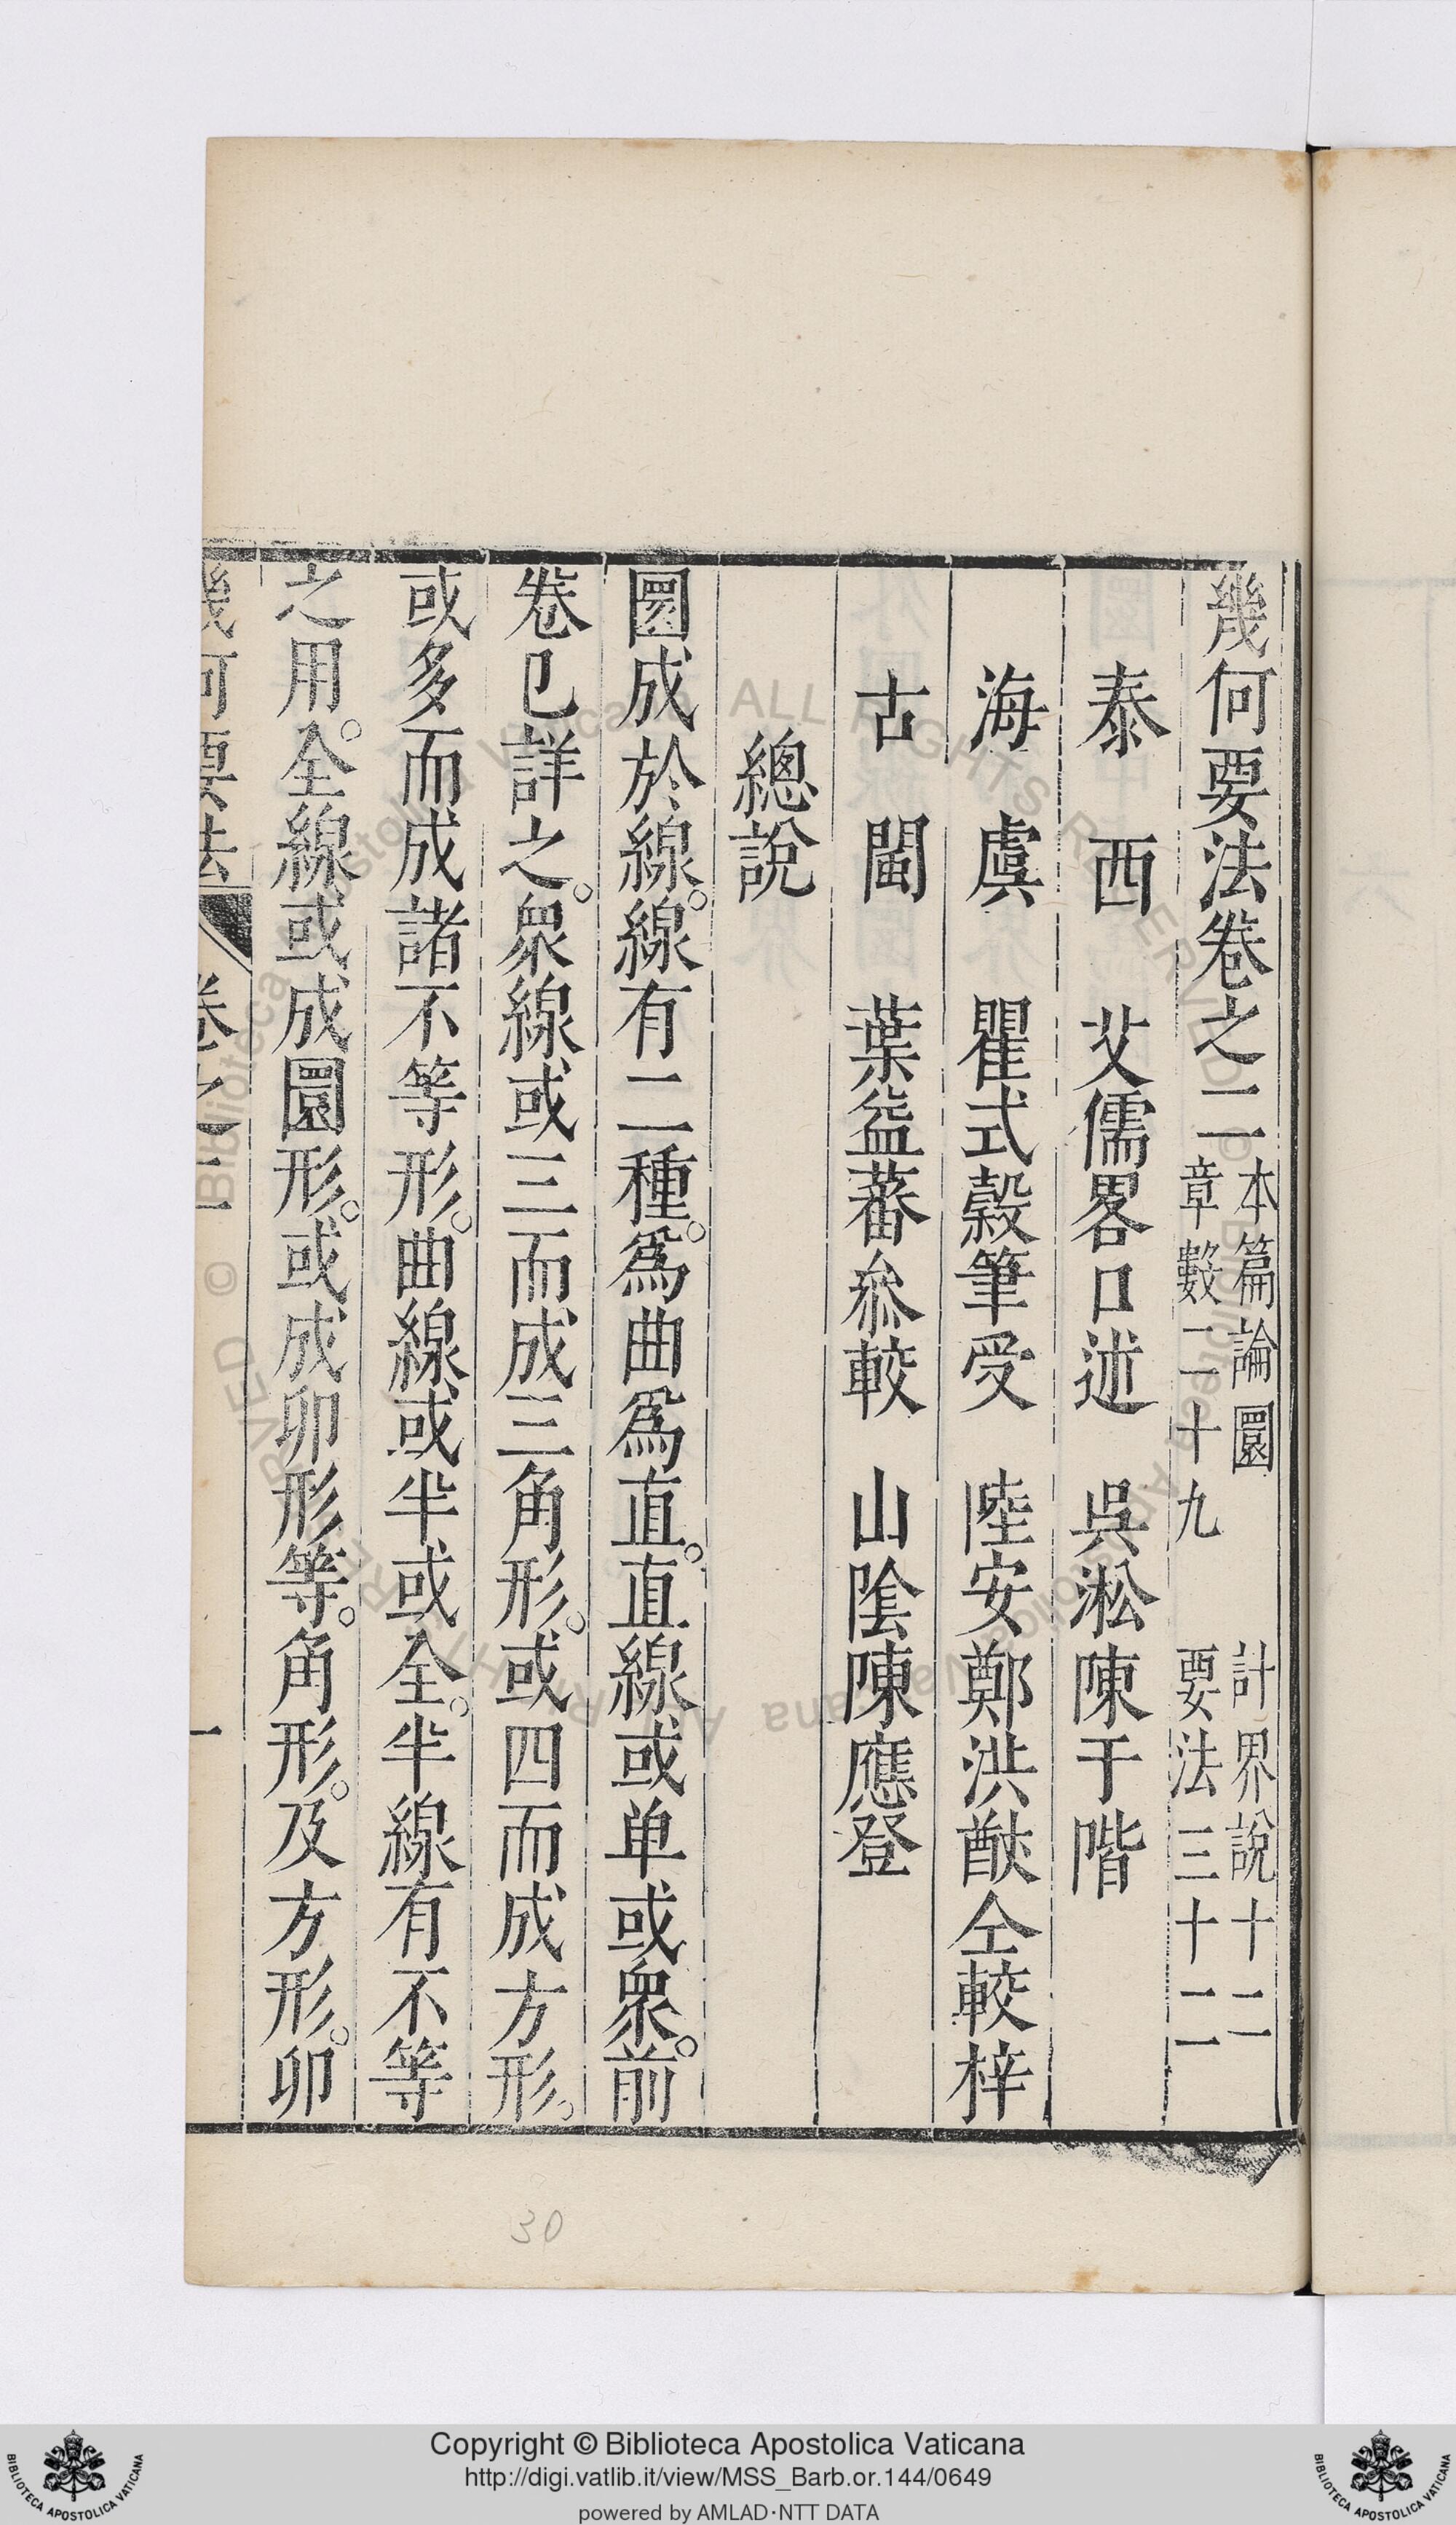 幾何要法卷之二 本篇論圜 計界說十二
章數二十九 要法三十二
泰西 艾儒畧口述 吳淞陳于階
海虞 瞿式穀筆受 陸安鄭洪猷仝較梓
古閩 葉益蕃叅較 山陰陳應登
總說
圜成於線。線有二種。爲曲爲直。直線或单或衆。前
卷已詳之。衆線或三而成三角形。或四而成方形。
或多而成諸不等形。曲線或半或全。半線有不等
之用。全線或成圜形。或成卵形等。角形。及方形。卵
幾何要法 卷之二 一
30
Copyright © Biblioteca Apostolica Vaticana
http://digi.vatlib.it/view/MSS_Barb.or.144/0649
powered by AMLAD·NTT DATA
BIBLIOTECA APOSTOLICA VATICANA
BIBLIOTECA APOSTOLICA VATICANA